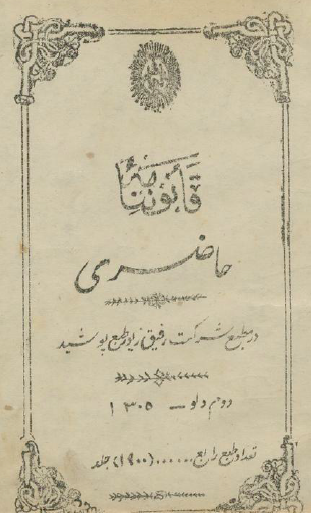 قانوننامه
حاضری
در مطبع شرکت رفیق زیور طبع پوشید
دوم دلو — ۱۳۰۵
تعداد طبع رابع ...... (۱۹۰۰) جلد